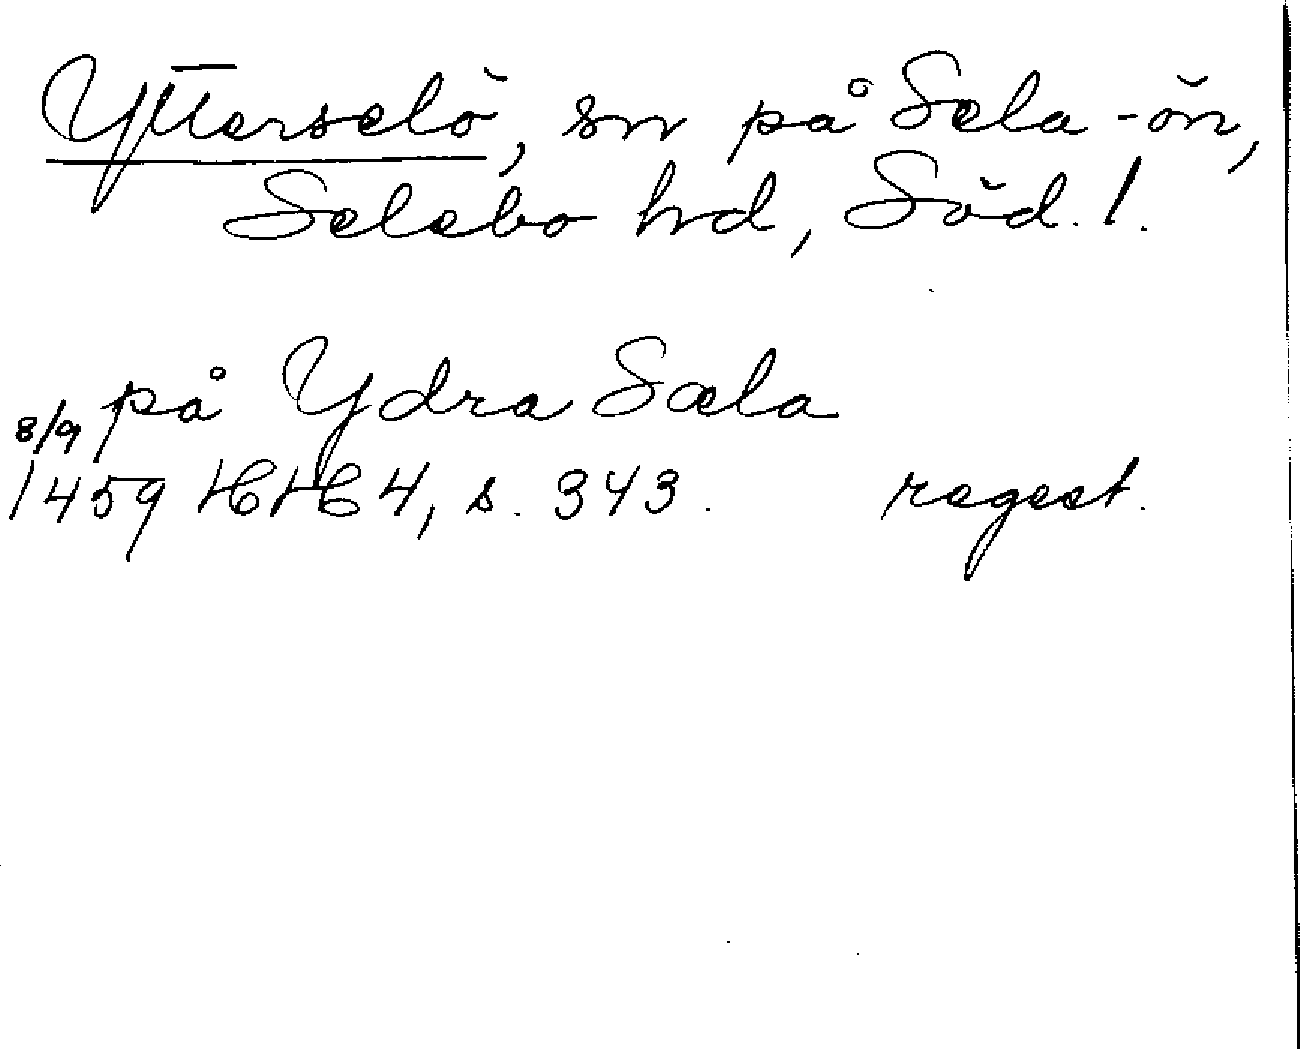 Ytterselö, sn på Sela-ön,
Selebo hd, Söd. l.
på Ydra Sæla
8/9
1459 HH 4, s. 343. regest.